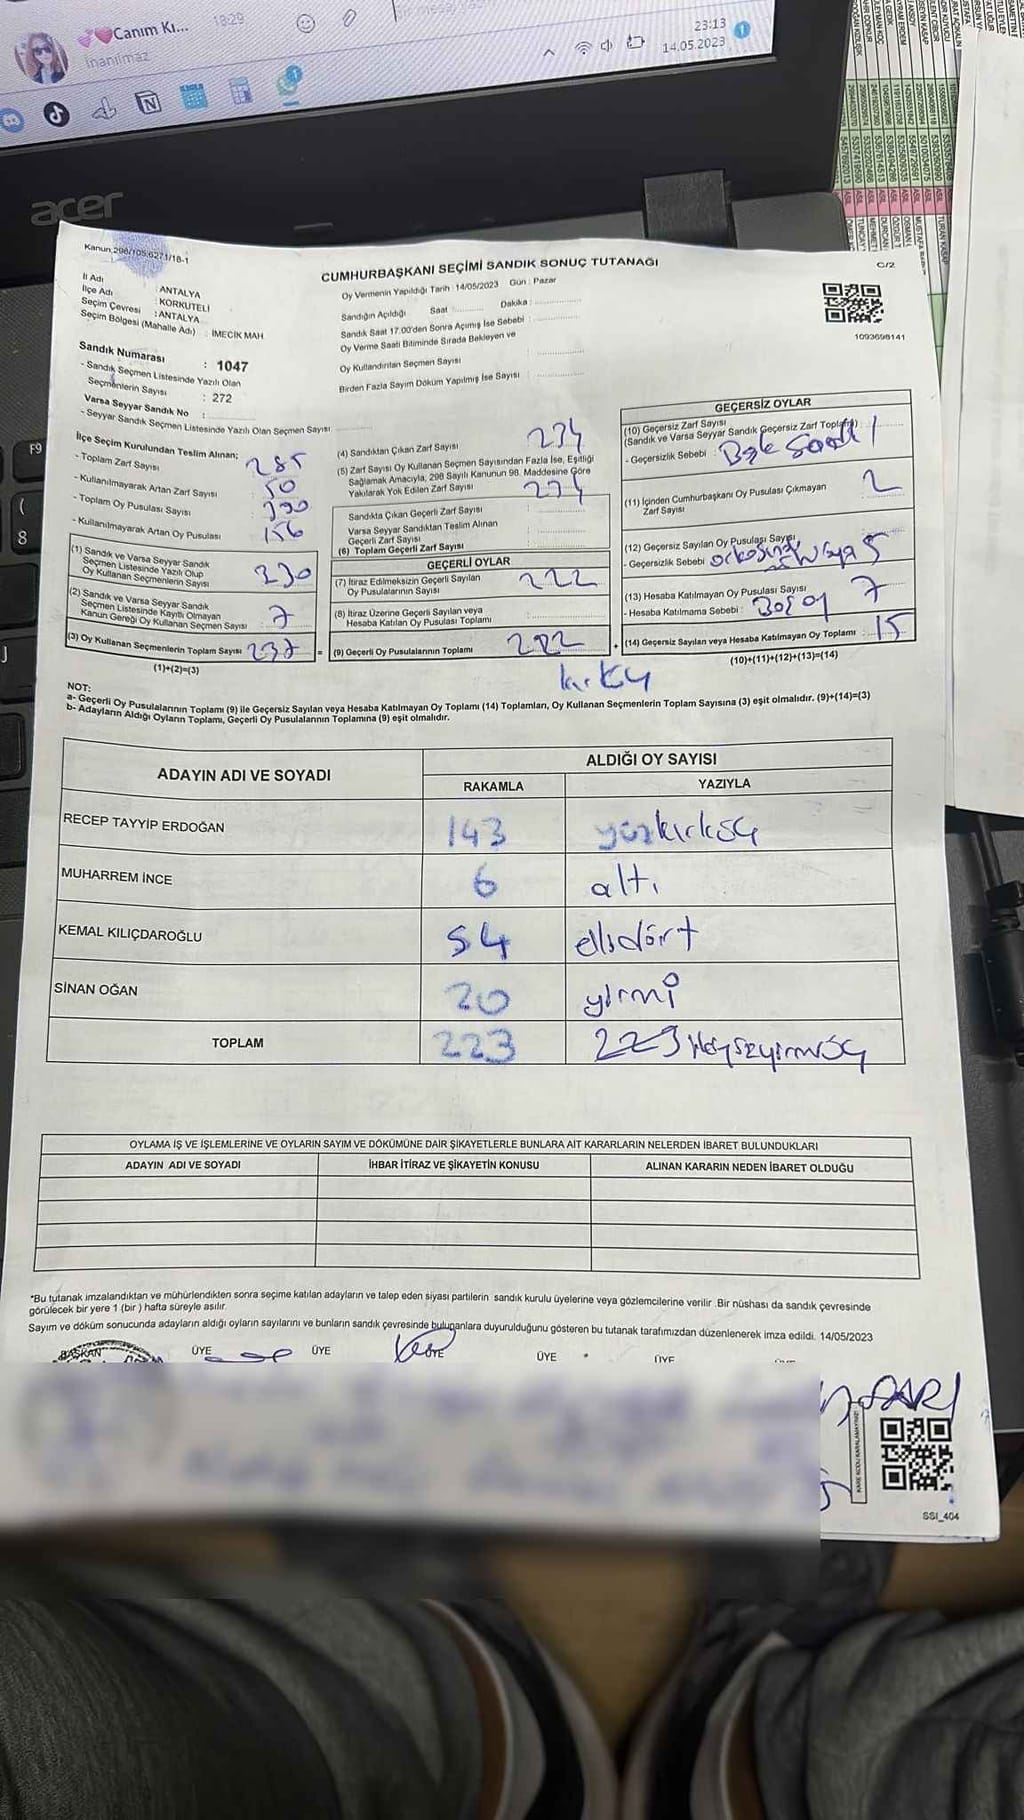 Canım Kı...
18:29
inanılmaz
23:13
14.05.2023
1
acer
F9
8
J
Kanun 298/105,6271/18-1
CUMHURBAŞKANI SEÇİMİ SANDIK SONUÇ TUTANAĞI
C/2
İl Adı : ANTALYA
İlçe Adı : KORKUTELİ
Seçim Çevresi : ANTALYA
Seçim Bölgesi (Mahalle Adı) : İMECİK MAH
Oy Vermenin Yapıldığı Tarih 14/05/2023 Gün : Pazar
Sandığın Açıldığı Saat Dakika :
Sandık Saat 17.00'den Sonra Açımış İse Sebebi :
Oy Verme Saati Bitiminde Sırada Bekleyen ve
Oy Kullandırılan Seçmen Sayısı
Birden Fazla Sayım Döküm Yapılmış İse Sayısı
1093698141
Sandık Numarası : 1047
- Sandık Seçmen Listesinde Yazılı Olan
Seçmenlerin Sayısı : 272
Varsa Seyyar Sandık No :
- Seyyar Sandık Seçmen Listesinde Yazılı Olan Seçmen Sayısı
İlçe Seçim Kurulundan Teslim Alınan;
- Toplam Zarf Sayısı 285
- Kullanılmayarak Artan Zarf Sayısı 50
- Toplam Oy Pusulası Sayısı 390
- Kullanılmayarak Artan Oy Pusulası 156
(1) Sandık ve Varsa Seyyar Sandık
Seçmen Listesinde Yazılı Olup
Oy Kullanan Seçmenlerin Sayısı 230
(2) Sandık ve Varsa Seyyar Sandık
Seçmen Listesinde Kayıtlı Olmayan
Kanun Gereği Oy Kullanan Seçmen Sayısı 7
(3) Oy Kullanan Seçmenlerin Toplam Sayısı 237
(1)+(2)=(3)
(4) Sandıktan Çıkan Zarf Sayısı 234
(5) Zarf Sayısı Oy Kullanan Seçmen Sayısından Fazla İse, Eşitliği
Sağlamak Amacıyla, 298 Sayılı Kanunun 98. Maddesine Göre
Yakılarak Yok Edilen Zarf Sayısı
234
Sandıkta Çıkan Geçerli Zarf Sayısı
Varsa Seyyar Sandıktan Teslim Alınan
Geçerli Zarf Sayısı
(6) Toplam Geçerli Zarf Sayısı
GEÇERLİ OYLAR
(7) İtiraz Edilmeksizin Geçerli Sayılan
Oy Pusulalarının Sayısı 222
(8) İtiraz Üzerine Geçerli Sayılan veya
Hesaba Katılan Oy Pusulası Toplamı
(9) Geçerli Oy Pusulalarının Toplamı 222
GEÇERSİZ OYLAR
(10) Geçersiz Zarf Sayısı
(Sandık ve Varsa Seyyar Sandık Geçersiz Zarf Toplamı)
- Geçersizlik Sebebi : 1
(11) İçinden Cumhurbaşkanı Oy Pusulası Çıkmayan
Zarf Sayısı 2
(12) Geçersiz Sayılan Oy Pusulası Sayısı
- Geçersizlik Sebebi 5
(13) Hesaba Katılmayan Oy Pusulası Sayısı
- Hesaba Katılmama Sebebi : Boş oy 7
(14) Geçersiz Sayılan veya Hesaba Katılmayan Oy Toplamı 15
(10)+(11)+(12)+(13)=(14)
NOT:
a- Geçerli Oy Pusulalarının Toplamı (9) ile Geçersiz Sayılan veya Hesaba Katılmayan Oy Toplamı (14) Toplamları, Oy Kullanan Seçmenlerin Toplam Sayısına (3) eşit olmalıdır. (9)+(14)=(3)
b- Adayların Aldığı Oyların Toplamı, Geçerli Oy Pusulalarının Toplamına (9) eşit olmalıdır.
ADAYIN ADI VE SOYADI
ALDIĞI OY SAYISI
RAKAMLA YAZIYLA
RECEP TAYYİP ERDOĞAN 143 yüzkırküç
MUHARREM İNCE 6 altı
KEMAL KILIÇDAROĞLU 54 ellidört
SİNAN OĞAN 20 yirmi
TOPLAM 223 223
OYLAMA İŞ VE İŞLEMLERİNE VE OYLARIN SAYIM VE DÖKÜMÜNE DAİR ŞİKAYETLERLE BUNLARA AİT KARARLARIN NELERDEN İBARET BULUNDUKLARI
ADAYIN ADI VE SOYADI İHBAR İTİRAZ VE ŞİKAYETİN KONUSU ALINAN KARARIN NEDEN İBARET OLDUĞU
*Bu tutanak imzalandıktan ve mühürlendikten sonra seçime katılan adayların ve talep eden siyasi partilerin sandık kurulu üyelerine veya gözlemcilerine verilir .Bir nüshası da sandık çevresinde
görülecek bir yere 1 (bir ) hafta süreyle asılır.
Sayım ve döküm sonucunda adayların aldığı oyların sayılarını ve bunların sandık çevresinde bulunanlara duyurulduğunu gösteren bu tutanak tarafımızdan düzenlenerek imza edildi. 14/05/2023
BAŞKAN ÜYE ÜYE ÜYE ÜYE ÜYE
SARI
KARE KODU KARALAMAYINIZ!
SSI_404